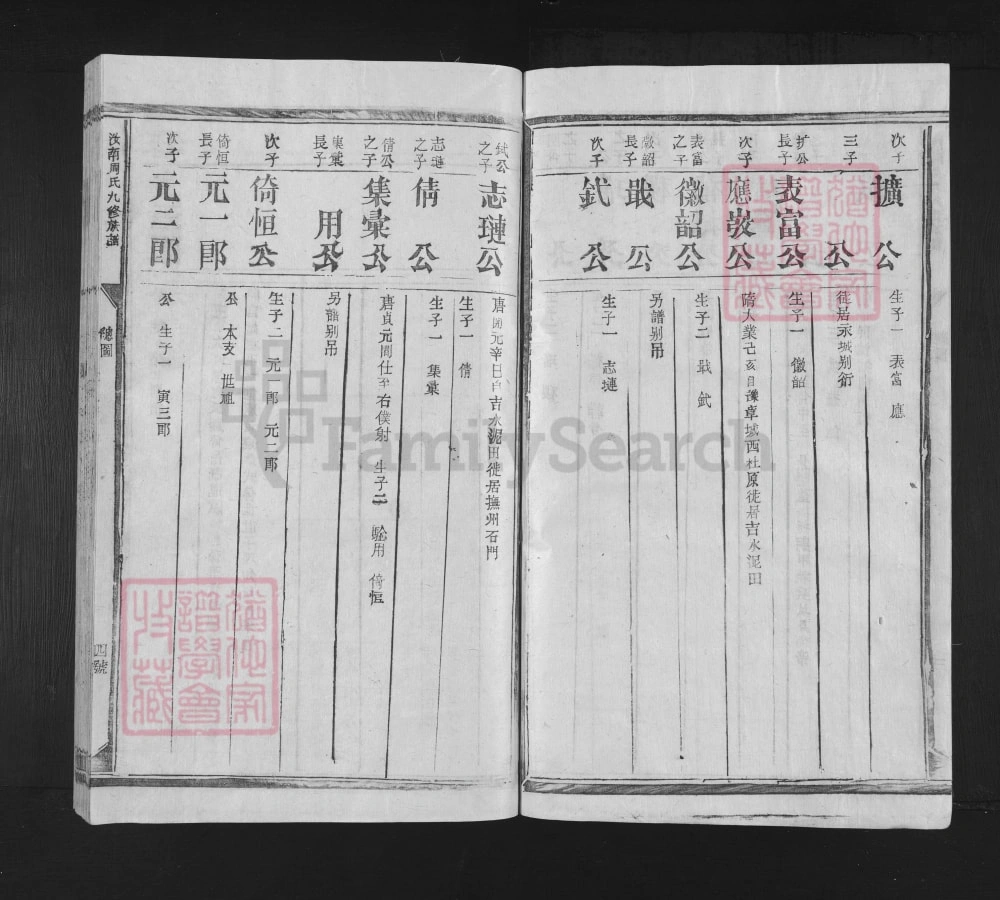 次子
擴公
生子一 表富 應
三子
公
徙居永城别衍
扩公長子
表富公
生子一 徽韶
次子
應敭公
隋大業己亥自譙卓城西杜原徙居吉水泥田
表富之子
徽韶公
生子二 戢 鉽
徽韶長子
戢公
另譜别吊
次子
鉽公
生子一 志璉
鉽公之子
志璉公
唐開元辛巳自吉水泥田徙居撫州石門
生子一 倩
志璉之子
倩公
生子一 集彙
倩公之子
集彙公
唐貞元間仕至右僕射 生子二 用 倚恒
集彙長子
用公
另譜别吊
次子
倚恒公
生子二 元一郎 元二郎
倚恒長子
元一郎
公 本支 世
次子
元二郎
公 生子一 寅三郎
汝南周氏九修族譜
總圖
四號
FamilySearch